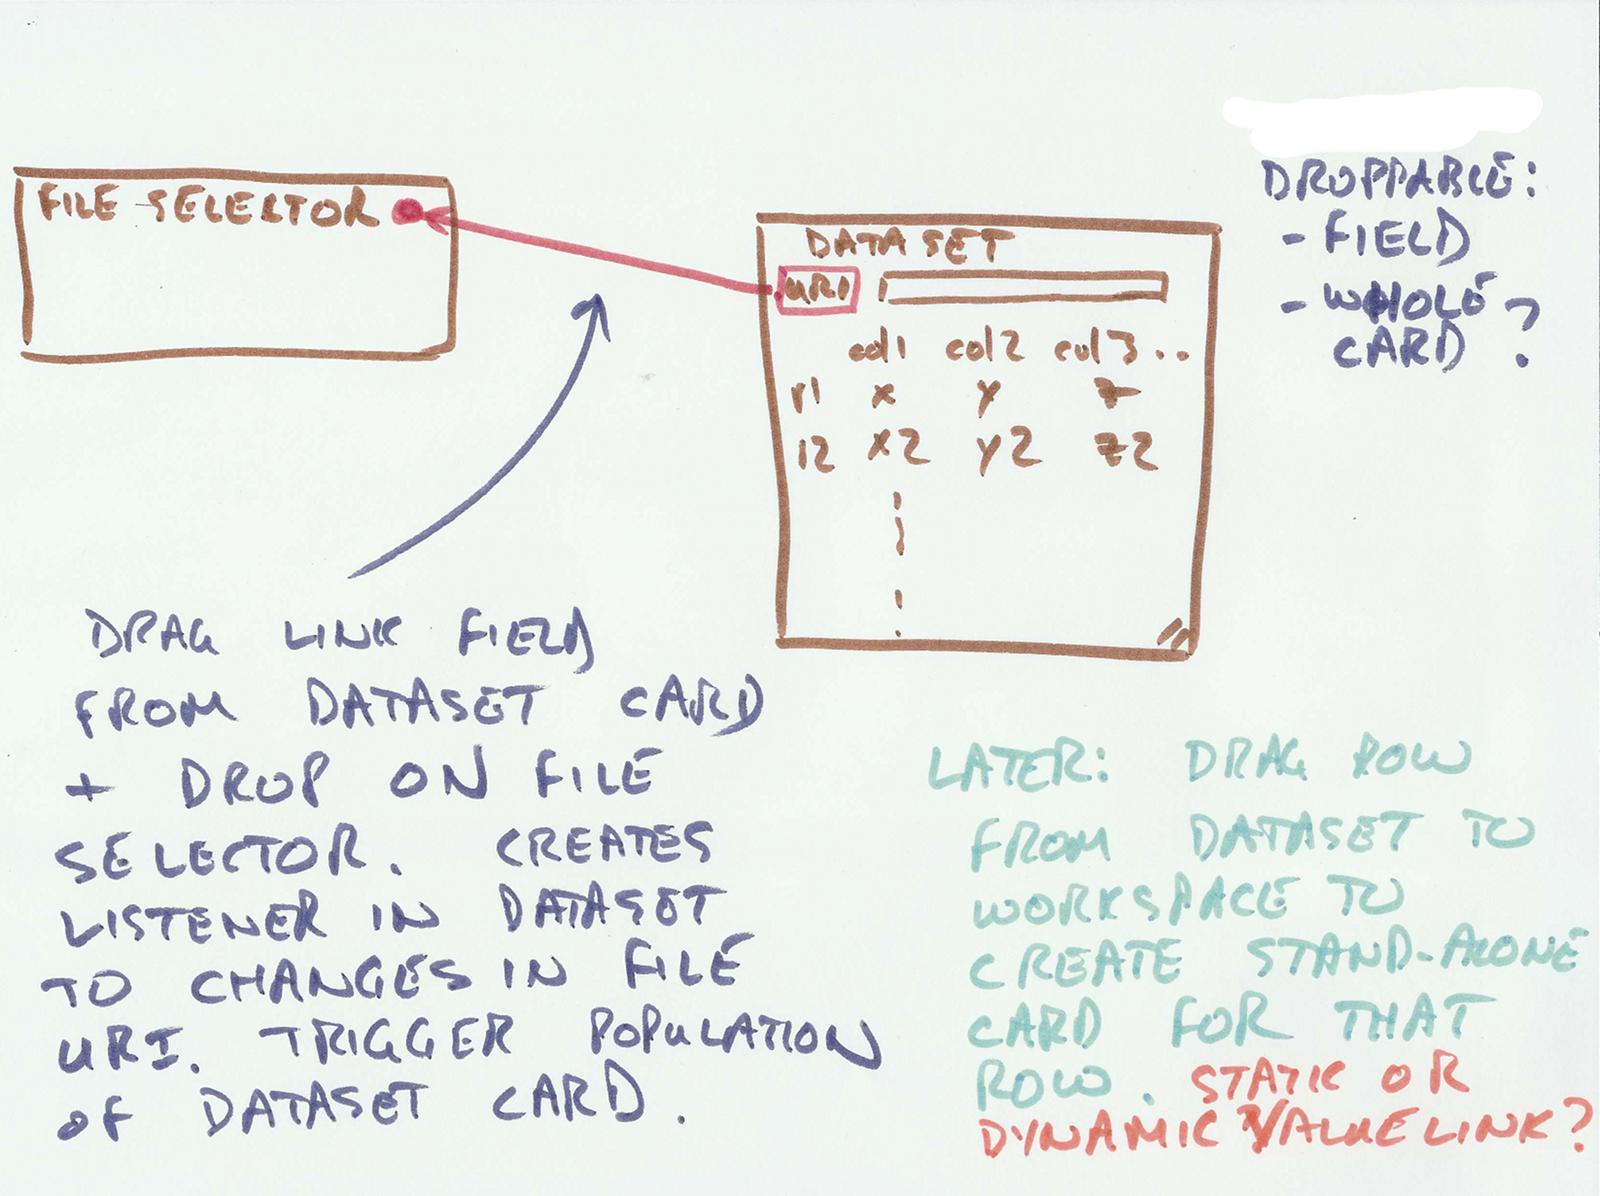 FILE SELECTOR
DATASET
URI
col1 col2 col3 ..
r1 x y z
r2 x2 y2 z2
DROPPABLE:
- FIELD
- WHOLE
CARD ?
DRAG LINK FIELD
FROM DATASET CARD
+ DROP ON FILE
SELECTOR. CREATES
LISTENER IN DATASET
TO CHANGES IN FILE
URI. TRIGGER POPULATION
OF DATASET CARD.
LATER: DRAG ROW
FROM DATASET TO
WORKSPACE TO
CREATE STAND-ALONE
CARD FOR THAT
ROW. STATIC OR
DYNAMIC VALUE LINK?